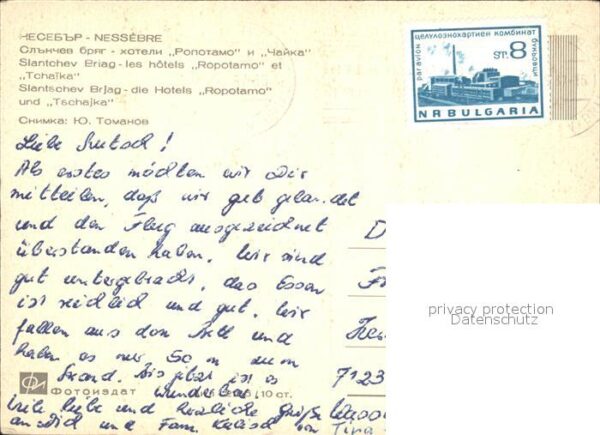 НЕСЕБЪР - NESSÈBRE
Слънчев бряг - хотели „Ропотамо" и „Чайка"
Slantchev Briag - les hôtels „Ropotamo" et
„Tchaïka"
Slantschev Brjag - die Hotels „Ropotamo"
und „Tschajka"
Снимка: Ю. Томанов
par avion
целулознохартиен комбинат
букьовци
ST. 8
NR BULGARIA
Liebe !
Als erstes möchten wir Dir
mitteilen, daß wir gut gelandet
und den Flug ausgezeichnet
überstanden haben. Wir sind
gut untergebracht, das Essen
ist reichlich und gut. Wir
fallen aus dem Bett und
haben es nur 50 m zum
Strand. Bis jetzt ist es
wunderbar.
Viele liebe und herzliche Grüße
an Dich und Fam.
Tina
D
F
7123
Фотоиздат
10 ст.
privacy protection
Datenschutz